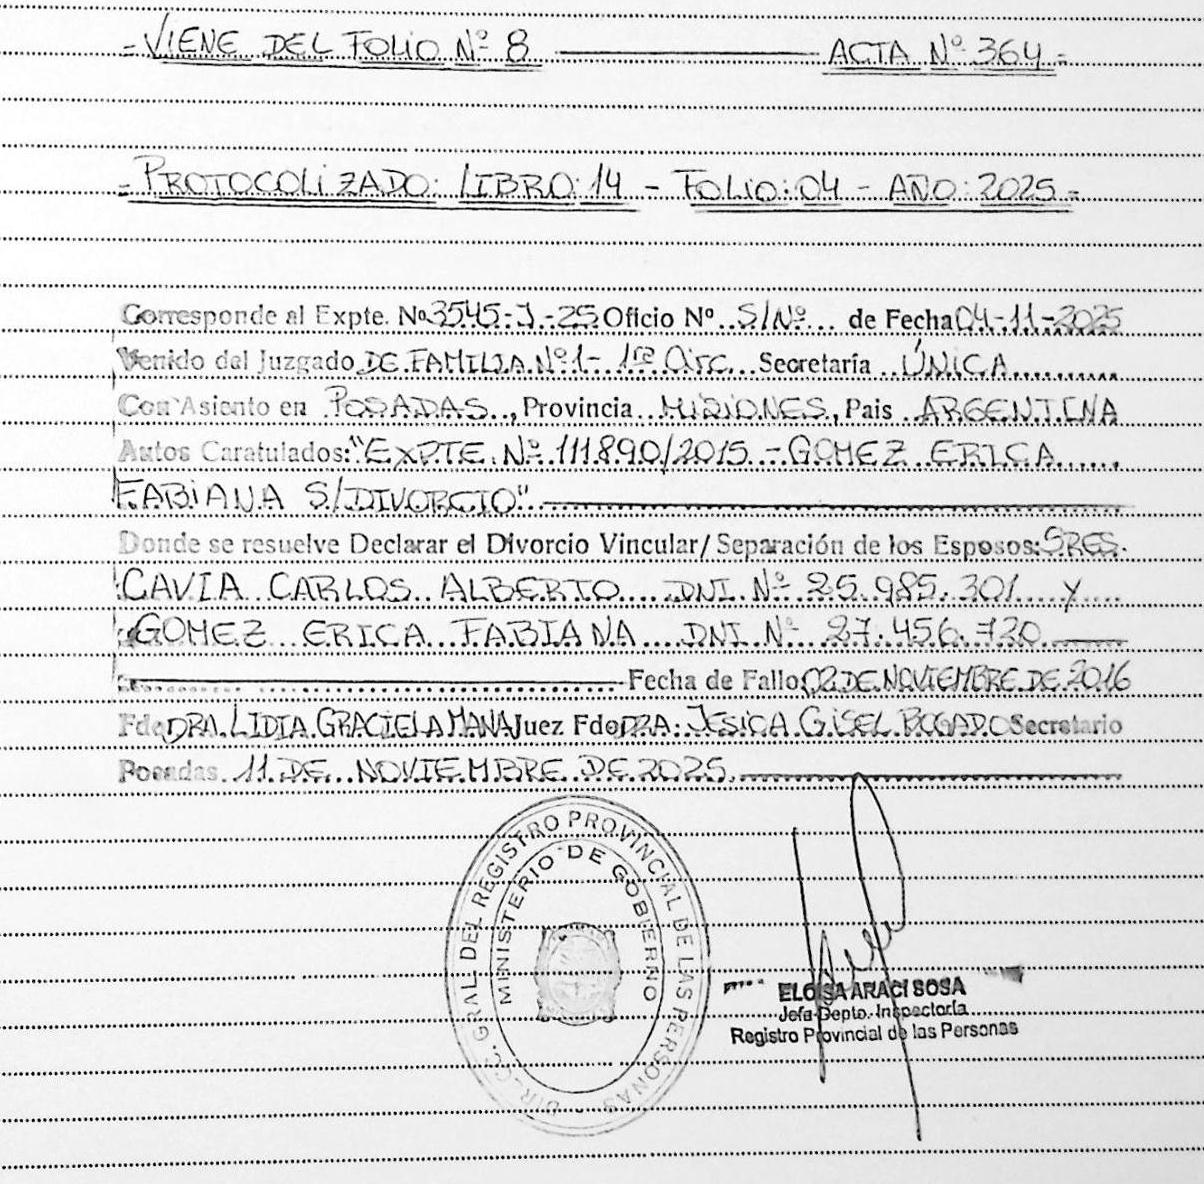 =VIENE DEL FOLIO Nº 8 ACTA Nº 364=
=PROTOCOLIZADO: LIBRO: 14 - FOLIO: 04 - AÑO: 2025=
Corresponde al Expte. Nº 3545-J-25 Oficio Nº S/Nº de Fecha 04-11-2025
Venido del Juzgado DE FAMILIA Nº 1- 1ra Circ. Secretaría ÚNICA
Con Asiento en POSADAS, Provincia MISIONES, Pais ARGENTINA
Autos Caratulados: "EXPTE. Nº 111890/2015 - GOMEZ ERICA
FABIANA S/DIVORCIO"
Donde se resuelve Declarar el Divorcio Vincular/ Separación de los Esposos: SRES.
CAVIA CARLOS ALBERTO DNI. Nº 25.985.301 Y
GOMEZ ERICA FABIANA DNI. Nº 27.456.720
Fecha de Fallo 02 DE NOVIEMBRE DE 2016
Fdo DRA. LIDIA GRACIELA MANA Juez Fdo DRA. JESICA GISEL BOGADO Secretario
Posadas 11 DE NOVIEMBRE DE 2025.
DIRECC. GRAL DEL REGISTRO PROVINCIAL DE LAS PERSONAS
MINISTERIO DE GOBIERNO
ELOISA ARACI SOSA
Jefa Depto. Inspectoría
Registro Provincial de las Personas